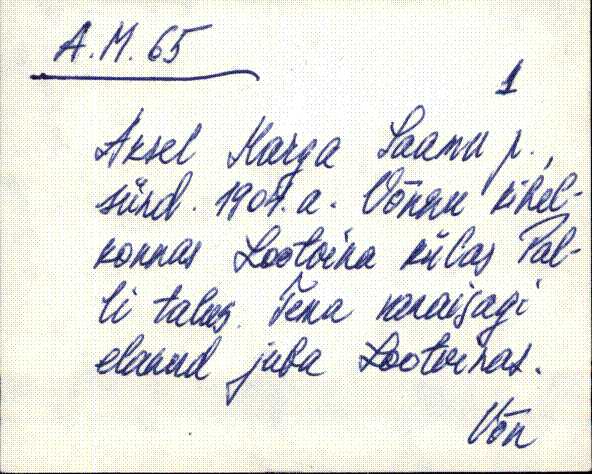 A.M. 65
1
Aksel Karga Saamu p.,
sünd. 1901. a. Võnnu kihel-
konnas Lootvina külas Pal-
li talus. Tema vanaisagi
elanud juba Lootvinas.
Võn